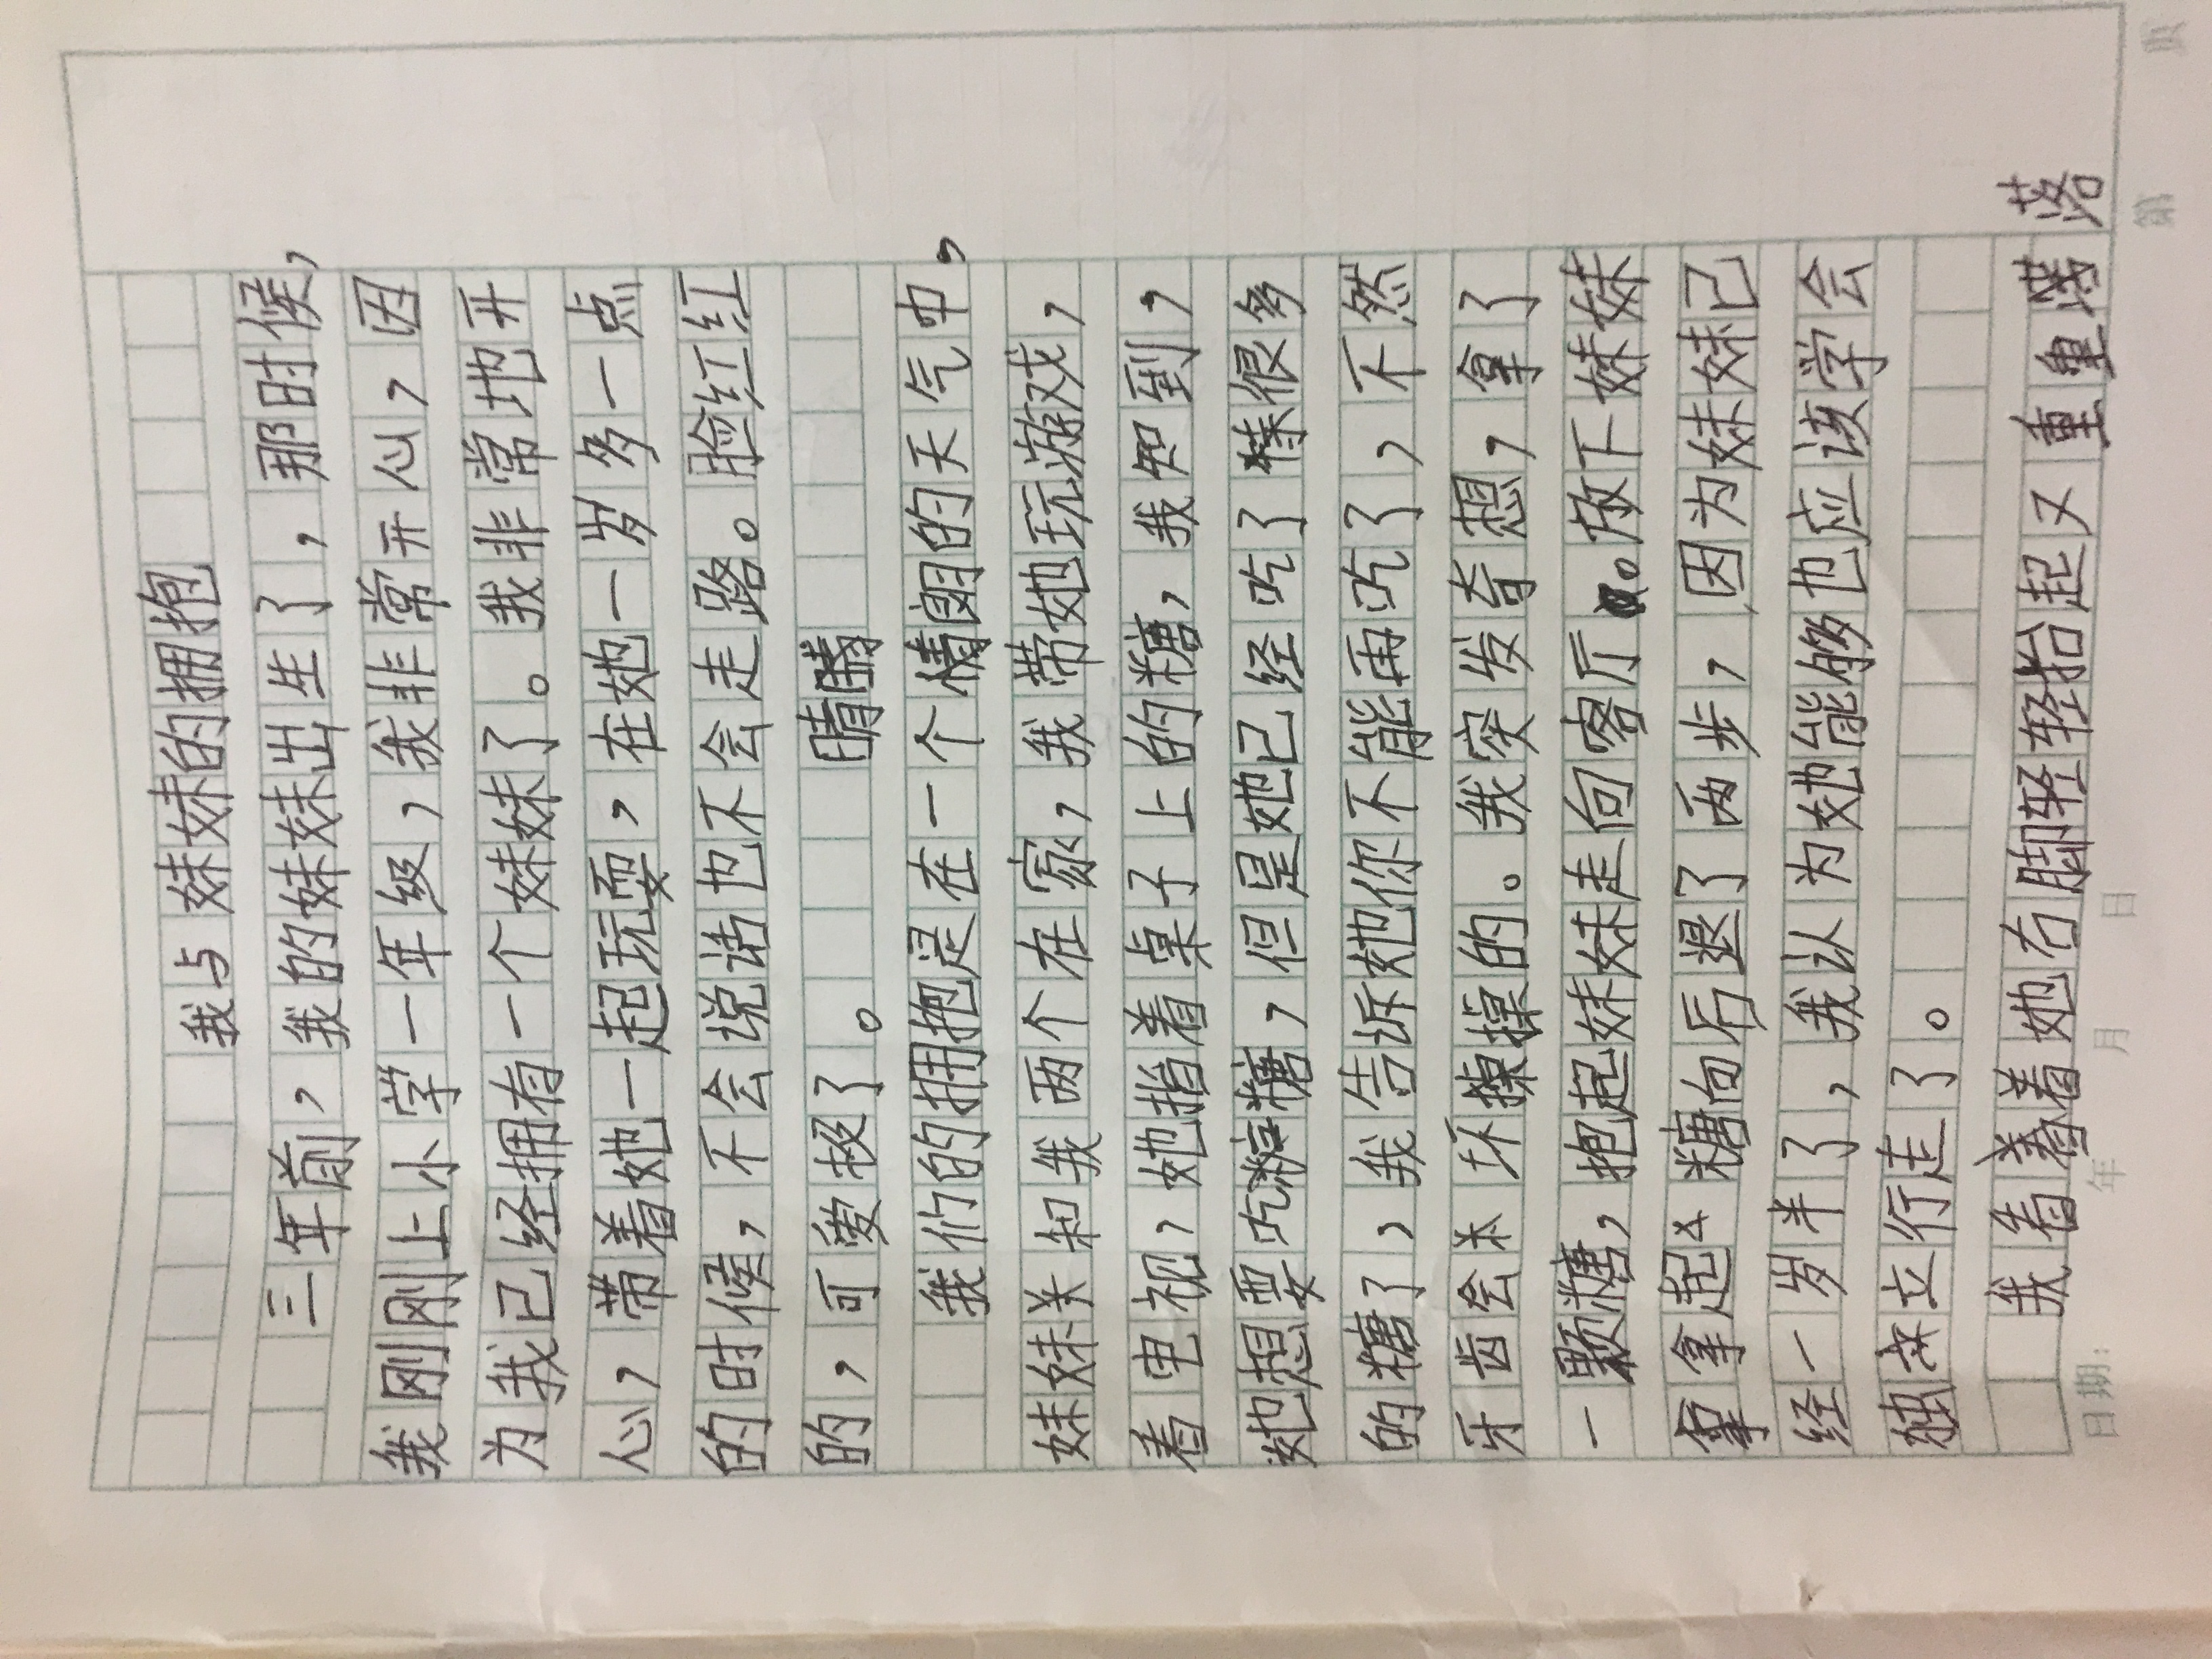 我与妹妹的拥抱
三年前，我的妹妹出生了，那时候，
我刚刚上小学一年级，我非常开心，因
为我已经拥有一个妹妹了。我非常地开
心，带着她一起玩耍，在她一岁多一点
的时候，不会说话也不会走路。脸红红
的，可爱极了。
晴
我们的拥抱是在一个晴朗的天气中，
妹妹关和我两个在家，我带她玩游戏，
着电视，她指着桌子上的糖，我知到，
她想要吃糖，但是她已经吃了很多
的糖了，我告诉她你不能再吃了，不然
牙齿会坏掉的。我突发奇想，拿了
一颗糖，抱起妹妹走向客厅。放下妹妹
拿起糖向后退了两步，因为妹妹已
经一岁半了，我认为她能够也应该学会
独立行走了。
我看着她右脚轻轻抬起又重重落
落
第 页
日期： 年 月 日